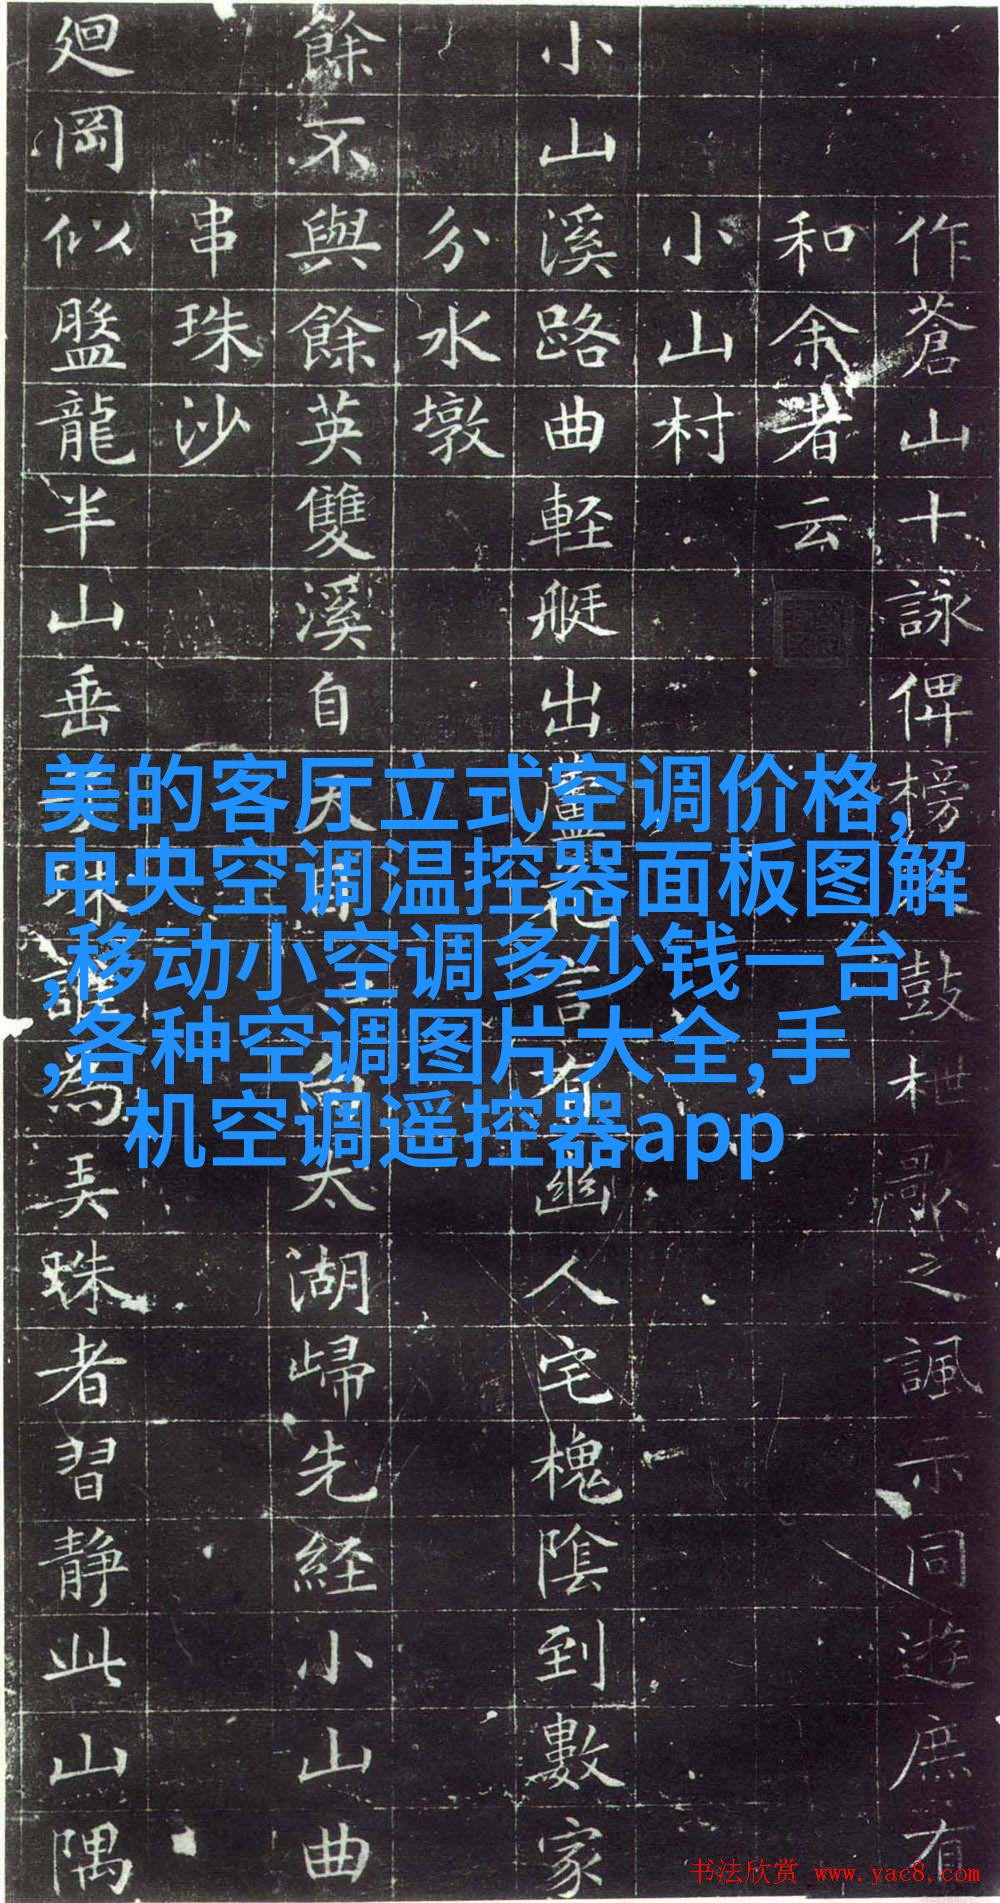 作蒼山十詠俾榜鼓枻歌之諷示同遊庶有
和余者云
小山村
小山溪路曲軽艇出蘆花言有幽人宅槐陰到數家
分水墩
餘不與餘英雙溪自天太湖歸先経小山曲
串珠沙
廻岡似盤龍半山垂珠誰為弄珠者習静此山隅
美的客厅立式空调价格,
中央空调温控器面板图解
,移动小空调多少钱一台
,各种空调图片大全,手
机空调遥控器app
书法欣赏 www.yac8.com